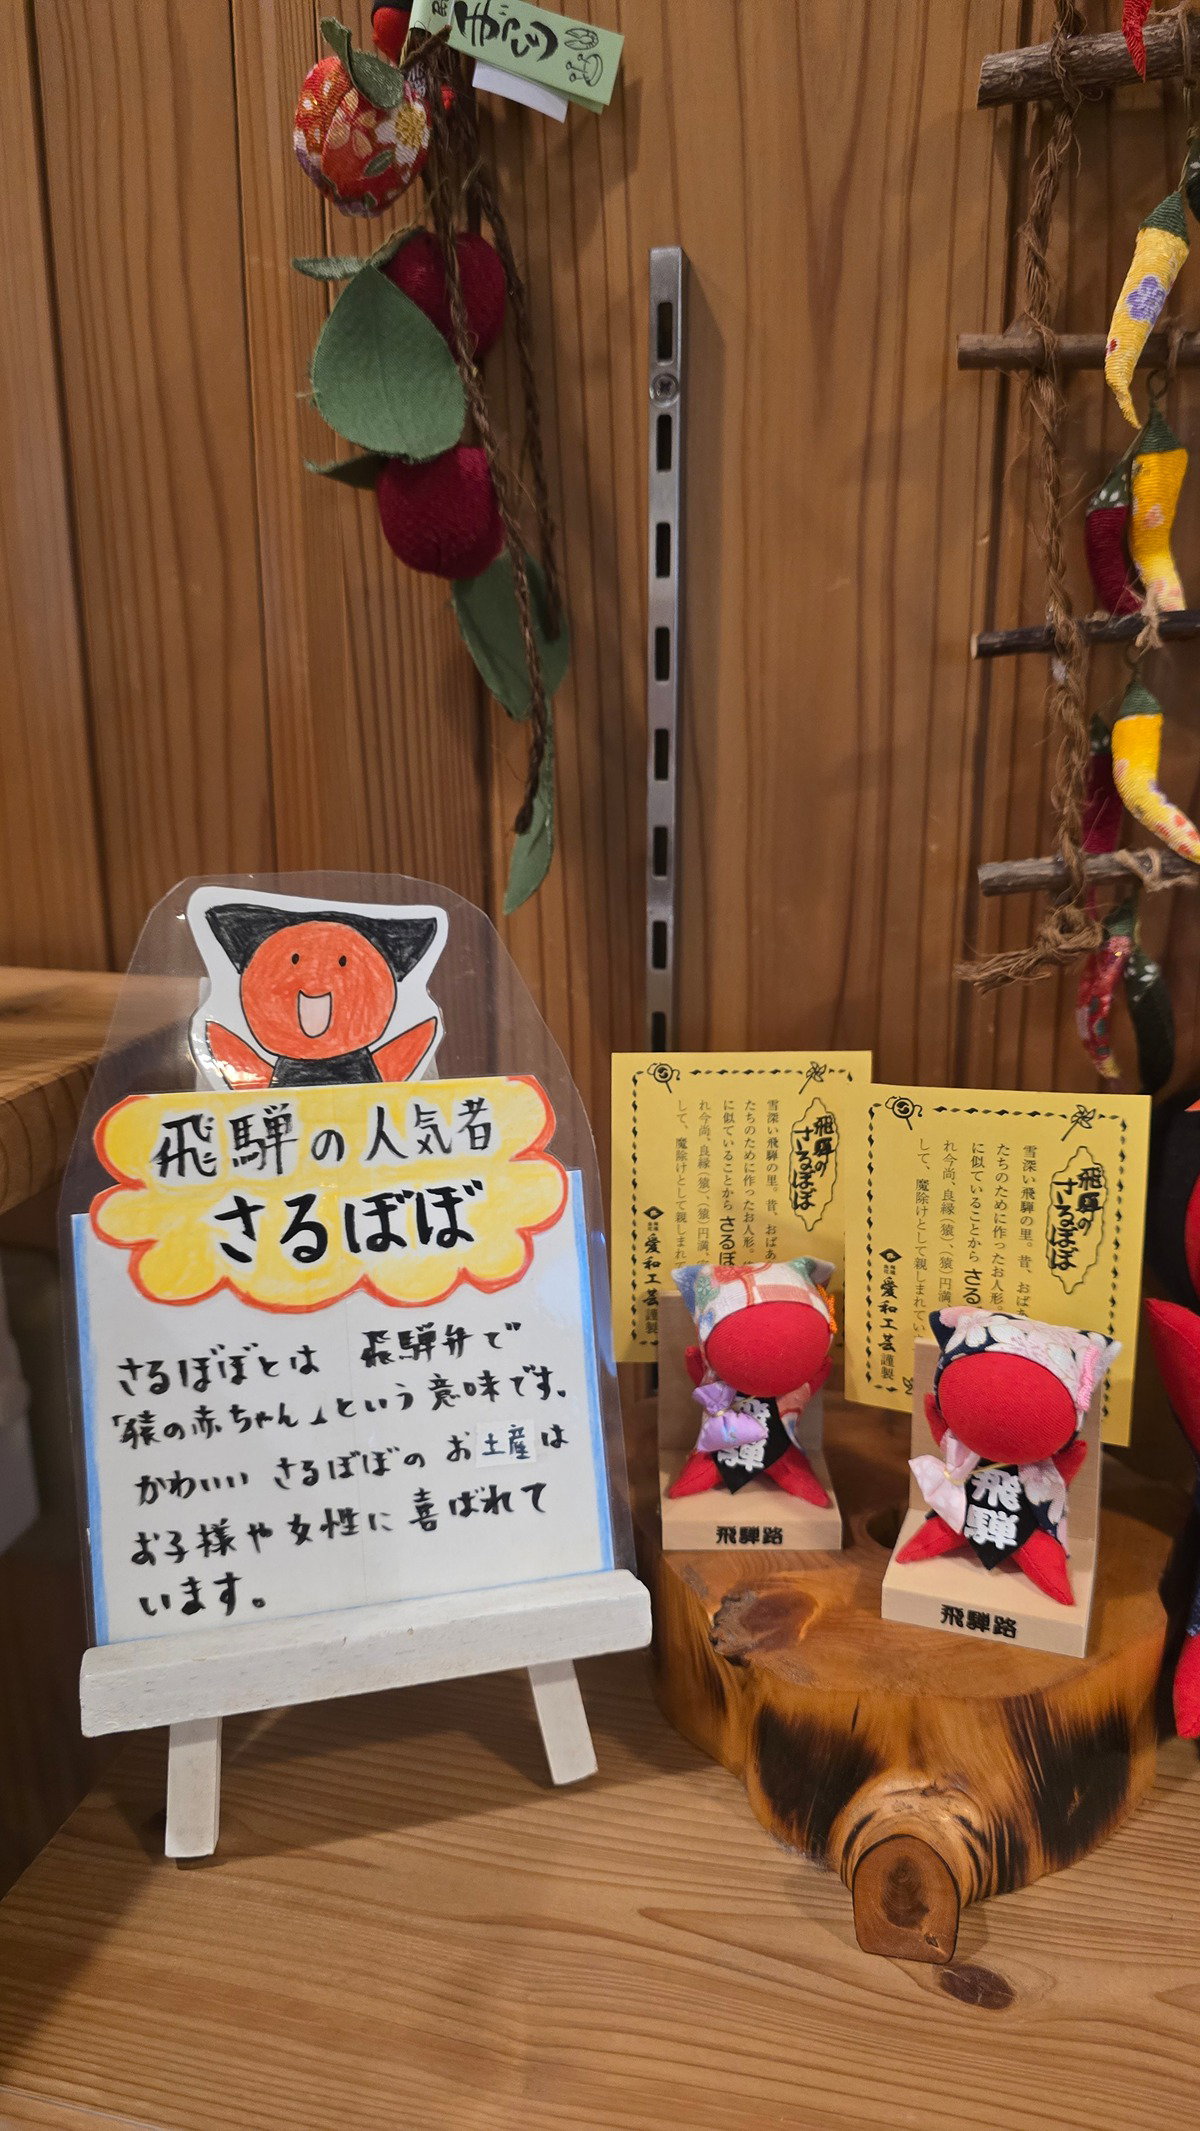 飛騨の人気者
さるぼぼ
さるぼぼとは 飛騨弁で
「猿の赤ちゃん」という意味です。
かわいい さるぼぼの お土産は
お子様や女性に喜ばれて
います。
飛騨の
さるぼぼ
雪深い飛騨の里。昔、おばあ
たちのために作ったお人形。
に似ていることからさるぼ
れ今尚、良縁(猿)、(猿)円満、
して、魔除けとして親しまれて
愛和工芸謹製
飛騨の
さるぼぼ
雪深い飛騨の里。昔、おばあ
たちのために作ったお人形。
に似ていることからさる
れ今尚、良縁(猿)、(猿)円満
して、魔除けとして親しまれてい
愛和工芸謹製
飛騨
飛騨路
飛騨
飛騨路